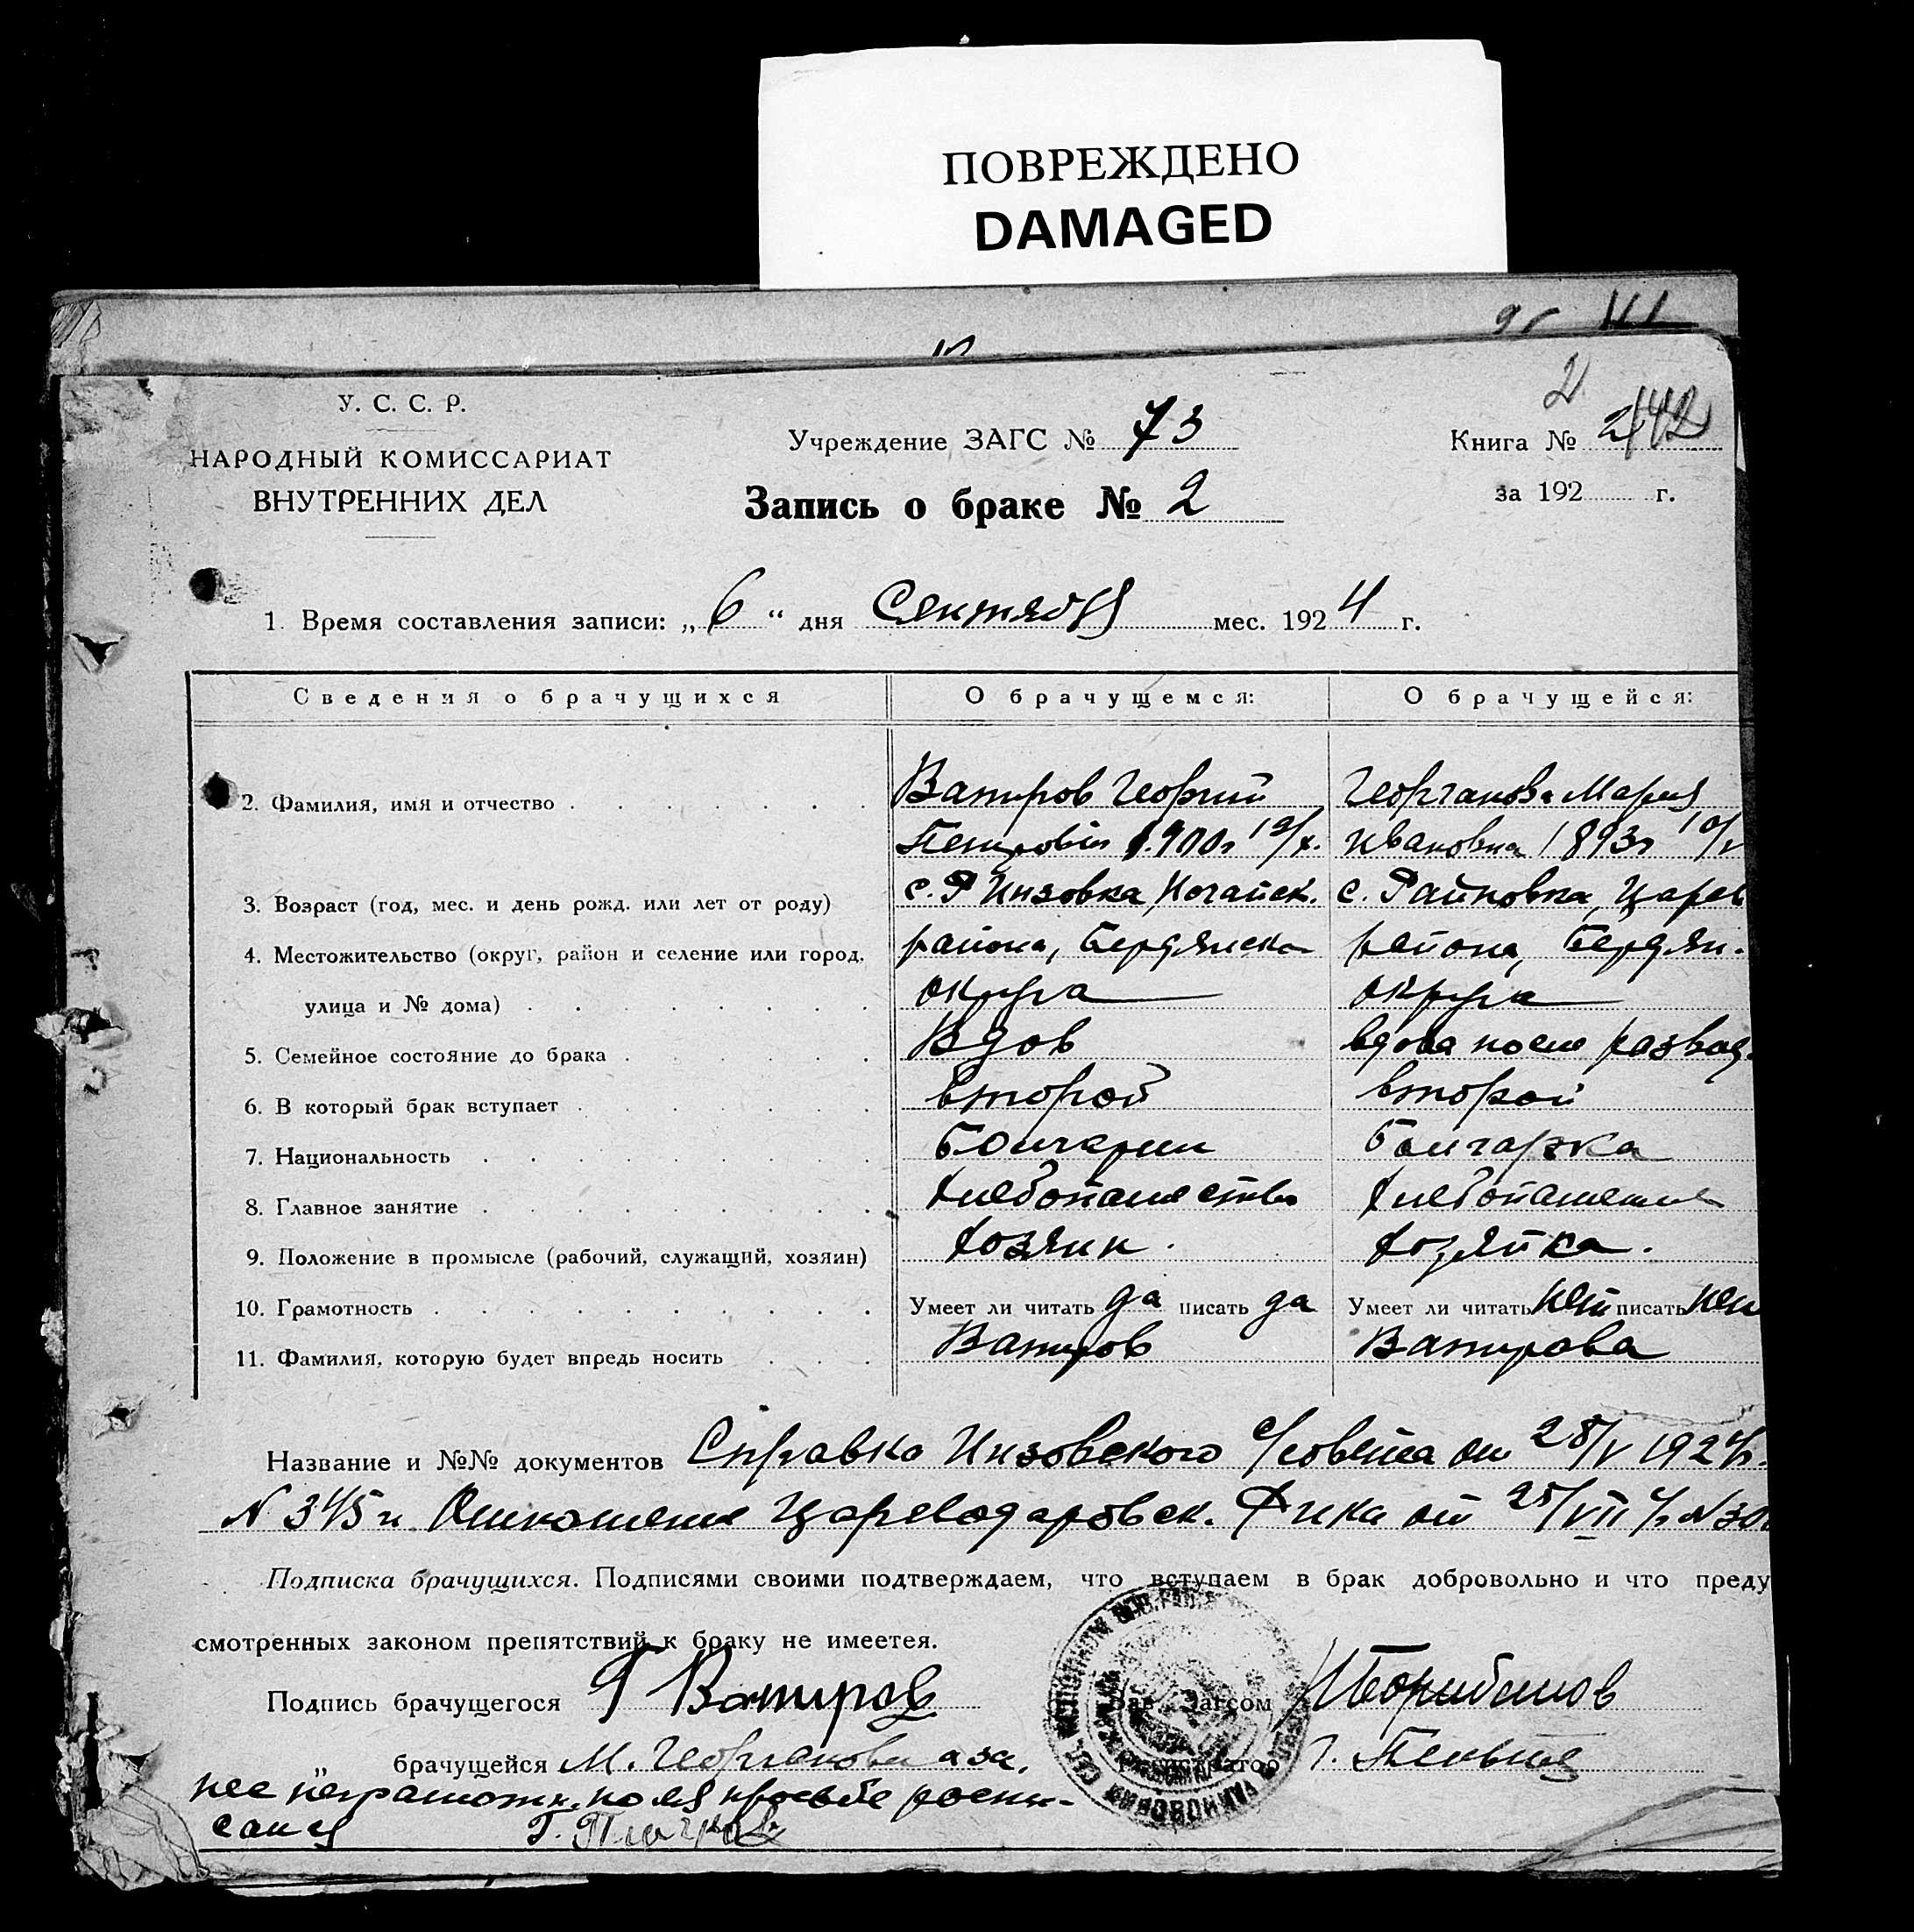 ПОВРЕЖДЕНО
DAMAGED
У. С. С. Р.
НАРОДНЫЙ КОМИССАРИАТ
ВНУТРЕННИХ ДЕЛ
Учреждение ЗАГС № 73
Запись о браке № 2
2
Книга № 242
за 192 г.
1. Время составления записи: „6“ дня Сентября мес. 1924 г.
Сведения о брачущихся
О брачущемся:
О брачущейся:
2. Фамилия, имя и отчество
Ватров Георгий
Георганова Мария
Петрович 1900г 19/X.
Ивановна 1893г 10/V
3. Возраст (год, мес. и день рожд. или лет от роду)
с. Инзовка, Ногайск.
с. Райновка, Царев
4. Местожительство (округ, район и селение или город,
района, Бердянска
района, Бердян.
улица и № дома)
округа
округа
5. Семейное состояние до брака
Вдов
вдова после развод.
6. В который брак вступает
второй
второй
7. Национальность
Болгарин
Болгарка
8. Главное занятие
хлебопашество
хлебопашество
9. Положение в промысле (рабочий, служащий, хозяин)
хозяин.
хозяйка.
10. Грамотность
Умеет ли читать да писать да
Умеет ли читать нет писать нет
11. Фамилия, которую будет впредь носить
Ватров
Ватрова
Название и №№ документов Справка Инзовского с/совета от 28/V 1924г.
N 345 и Отношение Цареводаровск. Рика от 25/VII с/г N30
Подписка брачущихся. Подписями своими подтверждаем, что вступаем в брак добровольно и что преду
смотренных законом препятствий к браку не имеется.
Подпись брачущегося Г Ватров
Зав. Загсом
„ брачущейся М. Георганова а за
Регистратор Г.
нее неграмотн. по ея просьбе распи-
сался Г.